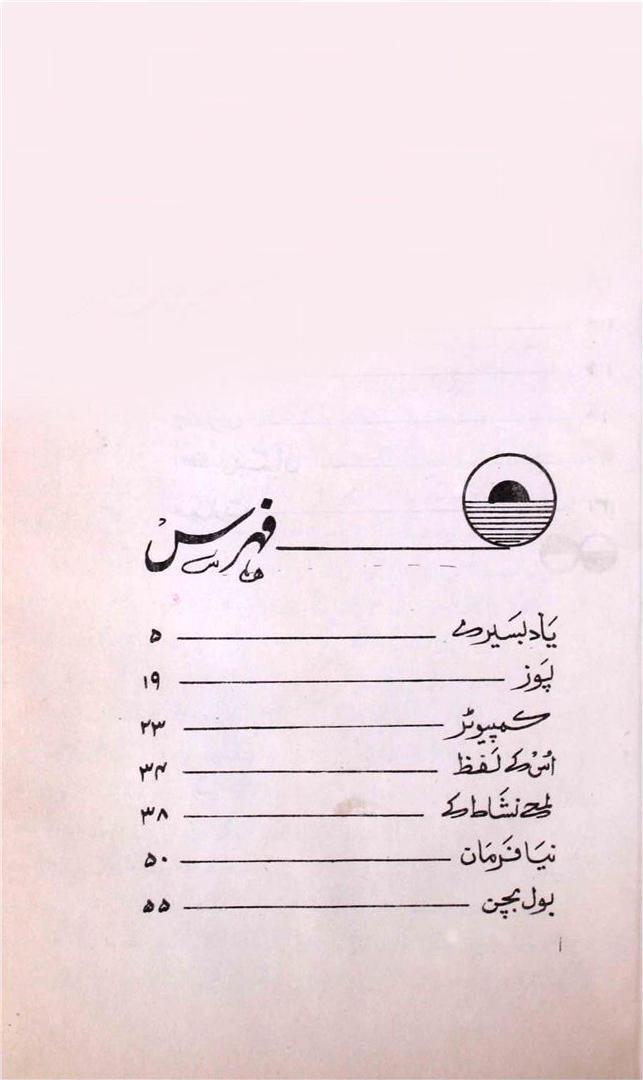 فہرس
یاد بسیرے ۵
پوز ۱۹
کمپیوٹر ۲۳
اُس کے لفظ ۳۴
لمحے نشاط کے ۳۸
نیا فرمان ۵۰
بول بچن ۵۵
۱